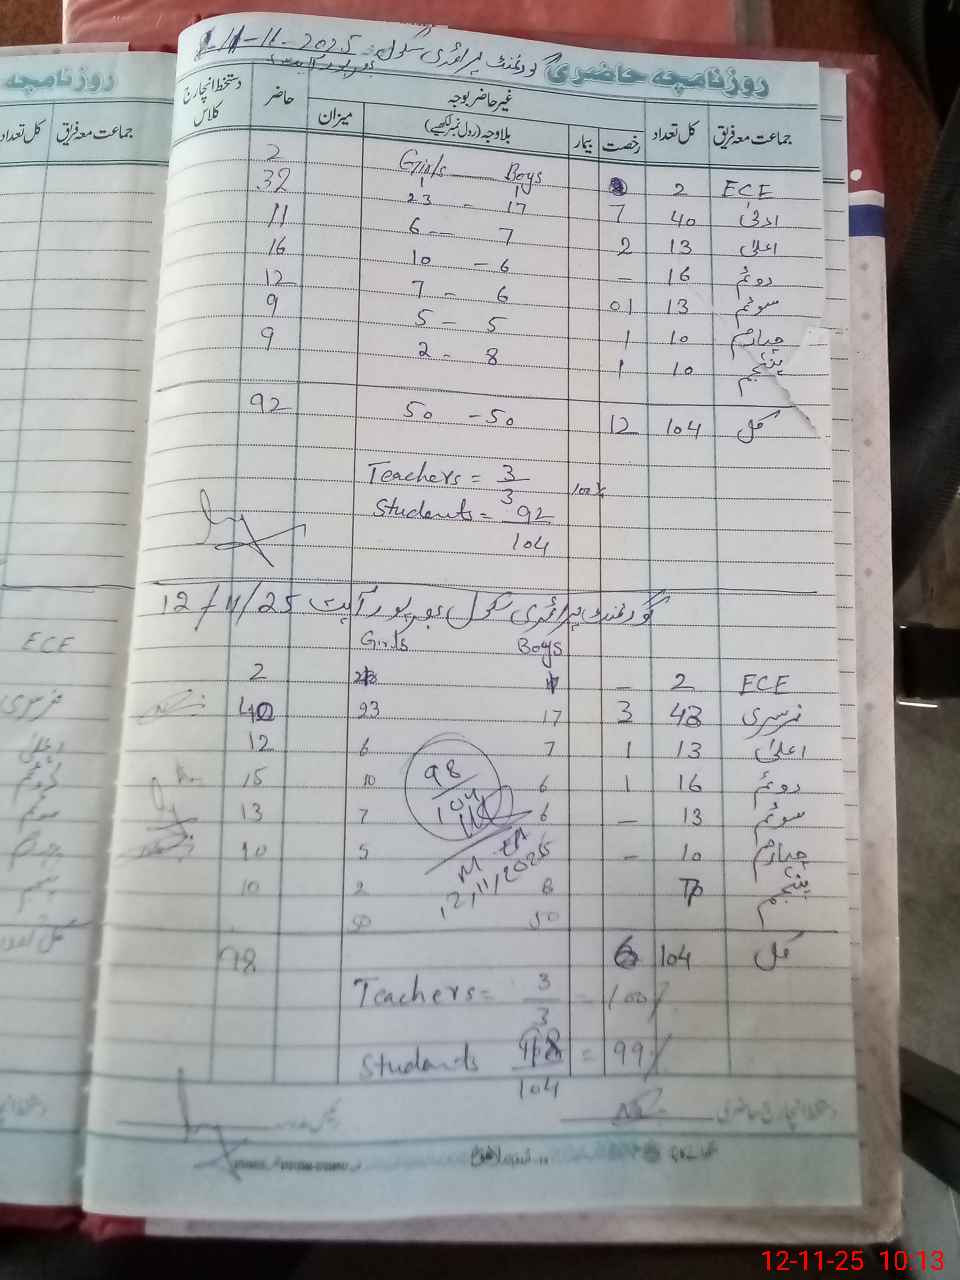 روزنامچہ حاضری گورنمنٹ پرائمری سکول 11-11-2025
جماعت معہ فریق کل تعداد غیر حاضر بوجہ حاضر دستخط انچارج کلاس
رخصت بیمار بلاوجہ (رول نمبر لکھیے) میزان
Girls Boys
ECE 2 2
ادنیٰ 40 7 23 - 17 32
اعلیٰ 13 2 6 - 7 11
دوئم 16 - 10 - 6 16
سوئم 13 01 7 - 6 12
چہارم 10 1 5 - 5 9
پنجم 10 1 2 - 8 9
کل 104 12 50 - 50 92
Teachers = 3/3 100%
Students = 92/104
گورنمنٹ پرائمری سکول 12/11/25
Girls Boys
ECE 2 - 2
نرسری 43 3 23 17 40
اعلیٰ 13 1 6 7 12
دوئم 16 1 10 6 15
سوئم 13 - 7 6 13
چہارم 10 - 5 5 10
پنجم 2 8 10
50 50
کل 104 6 98
98/104
12/11/2025
Teachers = 3/3 = 100%
Students 98/104 = 99%
روزنامچہ
جماعت معہ فریق کل تعداد
ECE
نرسری
12-11-25 10:13